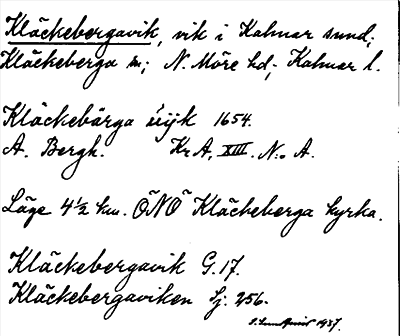 Kläckebergavik, vik i Kalmar sund;
Kläckeberga sn; N. Möre hd; Kalmar l.
Kläckebärga uijk 1654.
A. Bergh. Kr A, XIII. N:o A.
Läge 4 1/2 km. ÖNÖ Kläckeberga kyrka.
Kläckebergavik G. 17.
Kläckebergaviken Sj. 256.
1937.